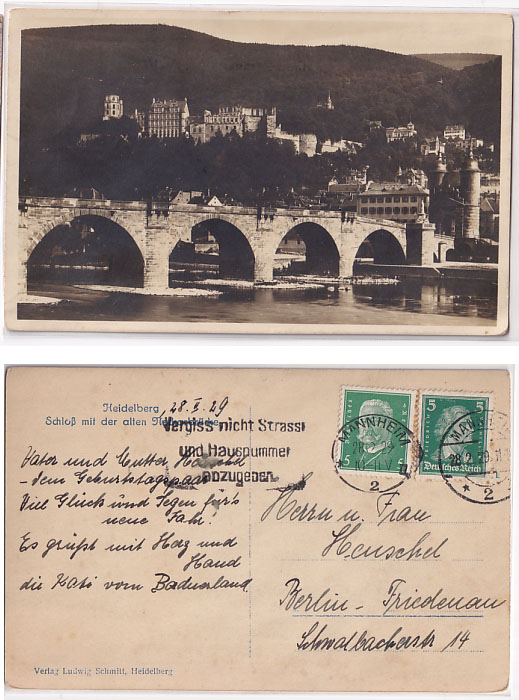 Heidelberg 28. II. 29
Schloß mit der alten Neckarbrücke
Vergiss nicht Strasse
und Hausnummer
anzugeben
Vater und Mutter
dem Geburtstagspaar
Viel Glück und Segen für's
neue Jahr!
Es grüßt mit Herz und
Hand
die Kati vom Badnerland.
Verlag Ludwig Schmitt, Heidelberg
5
5
Deutsches Reich
MANNHEIM
28. 2. 29. 11
2
Herrn u. Frau
Henschel
Berlin-Friedenau
Schwalbacherstr 14